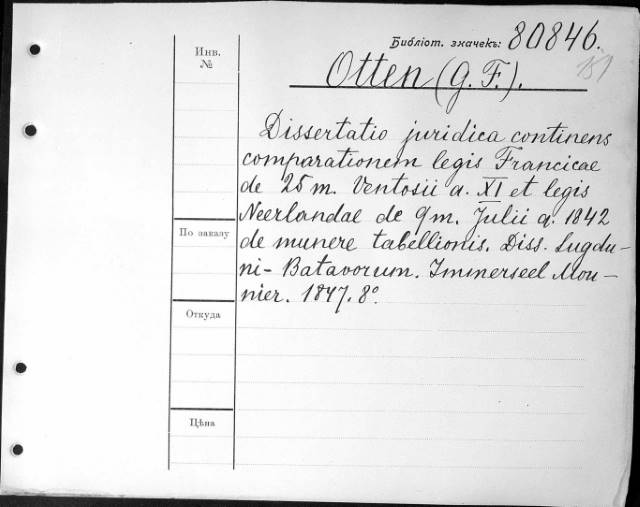 Библіот. значекъ: 80846.
151
Инв.
№
Otten (G. F.).
Dissertatio juridica continens
comparationem legis Francicae
de 25 m. Ventosii a. XI et legis
Neerlandae de 9 m. Julii a. 1842
de munere tabellionis. Diss. Lugdu-
ni-Batavorum. Immerseel Mou-
nier. 1847. 8°.
По заказу
Откуда
Цѣна